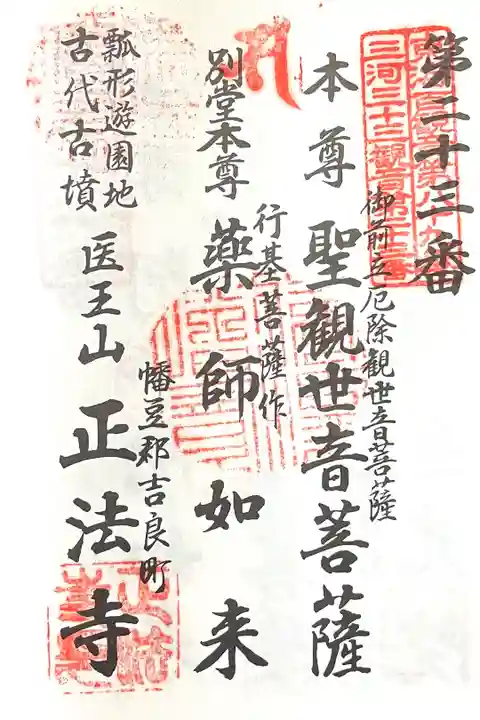 第二十三番
御前立厄除観世音菩薩
本尊聖観世音菩薩
行基菩薩作
別堂本尊薬師如来
幡豆郡吉良町
瓢形遊園地
古代古墳
医王山正法寺